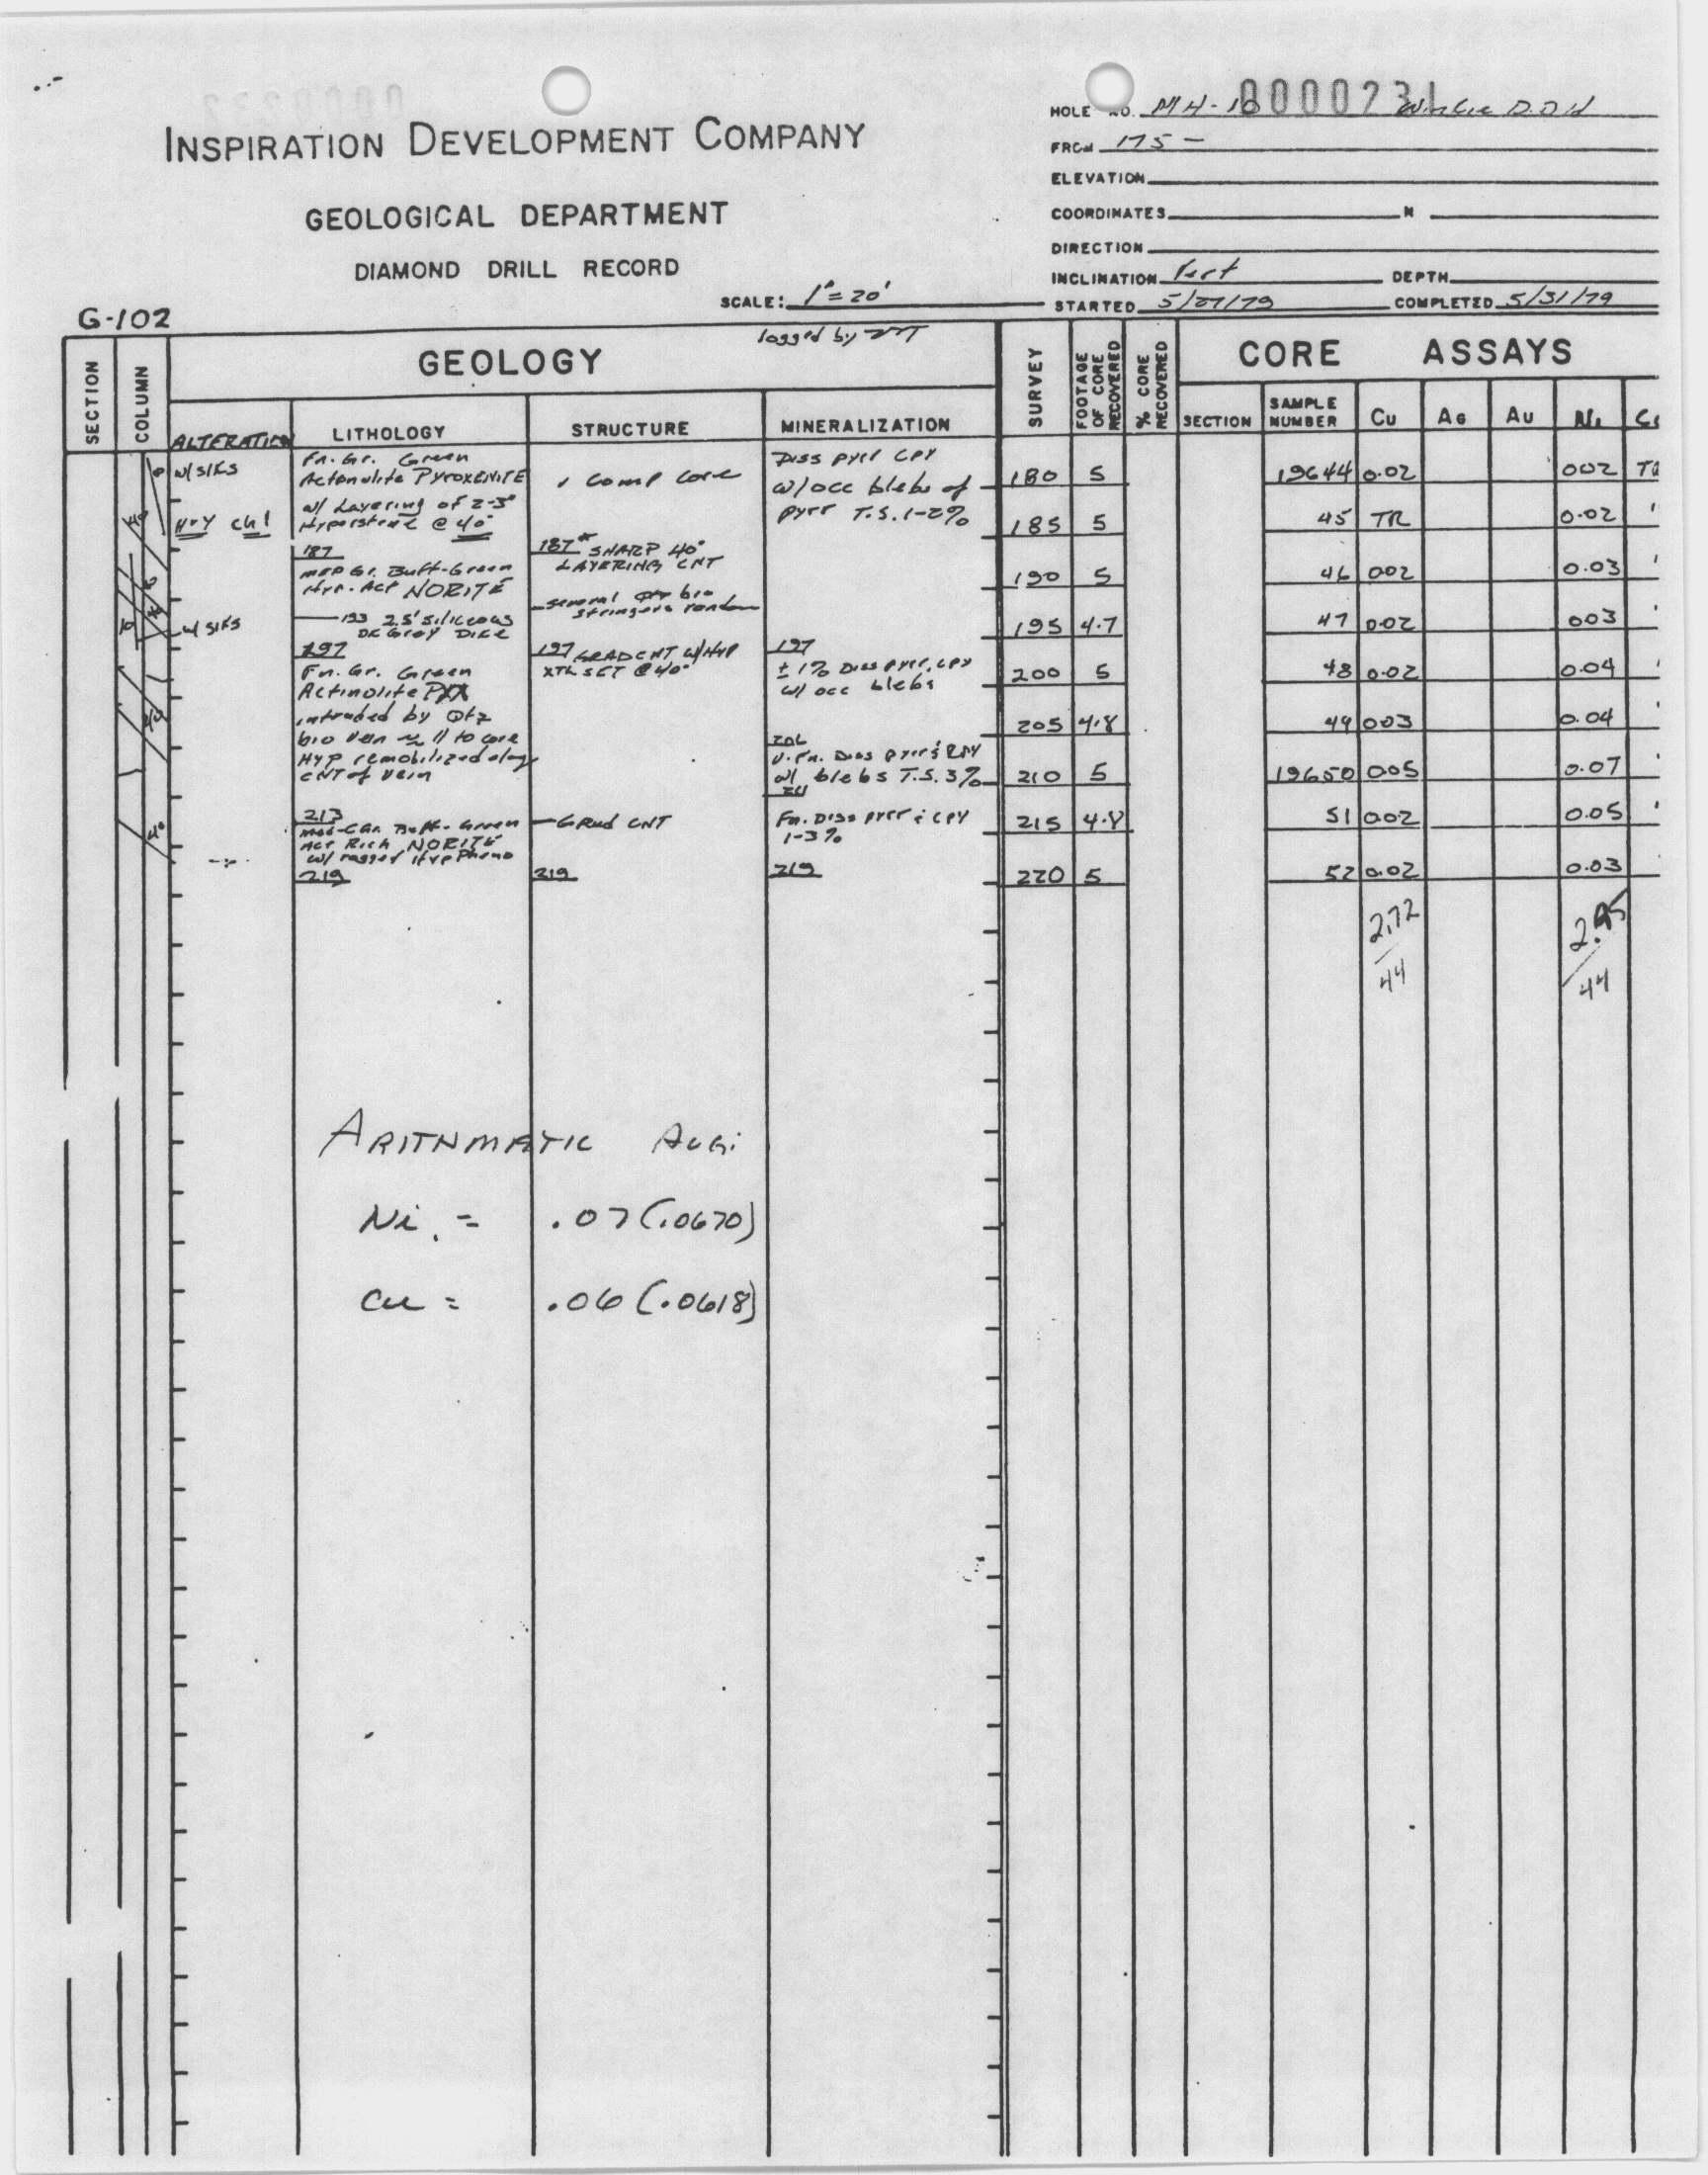 0000231
HOLE NO. MH-10 Winkie D.D.H
INSPIRATION DEVELOPMENT COMPANY
FROM 175 -
ELEVATION
GEOLOGICAL DEPARTMENT
COORDINATES N
DIRECTION
DIAMOND DRILL RECORD
INCLINATION Vert DEPTH
SCALE: 1"=20'
STARTED 5/27/79 COMPLETED 5/31/79
G-102
logged by
SECTION COLUMN GEOLOGY SURVEY FOOTAGE OF CORE RECOVERED % CORE RECOVERED CORE ASSAYS
ALTERATION LITHOLOGY STRUCTURE MINERALIZATION SECTION SAMPLE NUMBER Cu AG AU Ni
w/ SIKS
Hvy chl
w/ SIKS
Fn. Gr. Green
Actonolite PYROXENITE
w/ Layering of 2-3"
Hyperstene @ 40°
187
MED Gr. Buff-Green
Hyp. Act NORITE
193 2.5' Siliceous
DK Gray Dike
197
Fn. Gr. Green
Actinolite PXX
intruded by Qtz
bio vein ≈ // to core
HYP remobilized along
CNT of vein
213
Med-CGr. Buff-Green
Act Rich NORITE
w/ ragged Hyp Pheno
219
comp core
187 SHARP 40°
LAYERING CNT
several Qtz bio
stringers random
197 GRAD CNT w/HYP
XTL SET @ 40°
Grad CNT
219
Diss pyrr CPY
w/occ blebs of
pyrr T.S. 1-2%
197
± 1% Diss pyrr, cpy
w/ occ blebs
206
V. Fn. Diss pyrr & CPY
w/ blebs T.S. 3%
211
Fn. Diss pyrr & CPY
1-3%
219
180 5 19644 0.02 002
185 5 45 TR 0.02
190 5 46 002 0.03
195 4.7 47 0.02 003
200 5 48 0.02 0.04
205 4.8 49 003 0.04
210 5 19650 005 0.07
215 4.8 51 0.02 0.05
220 5 52 0.02 0.03
2.72
44
44
ARITHMATIC AVG:
Ni = .07 (.0670)
Cu = .06 (.0618)